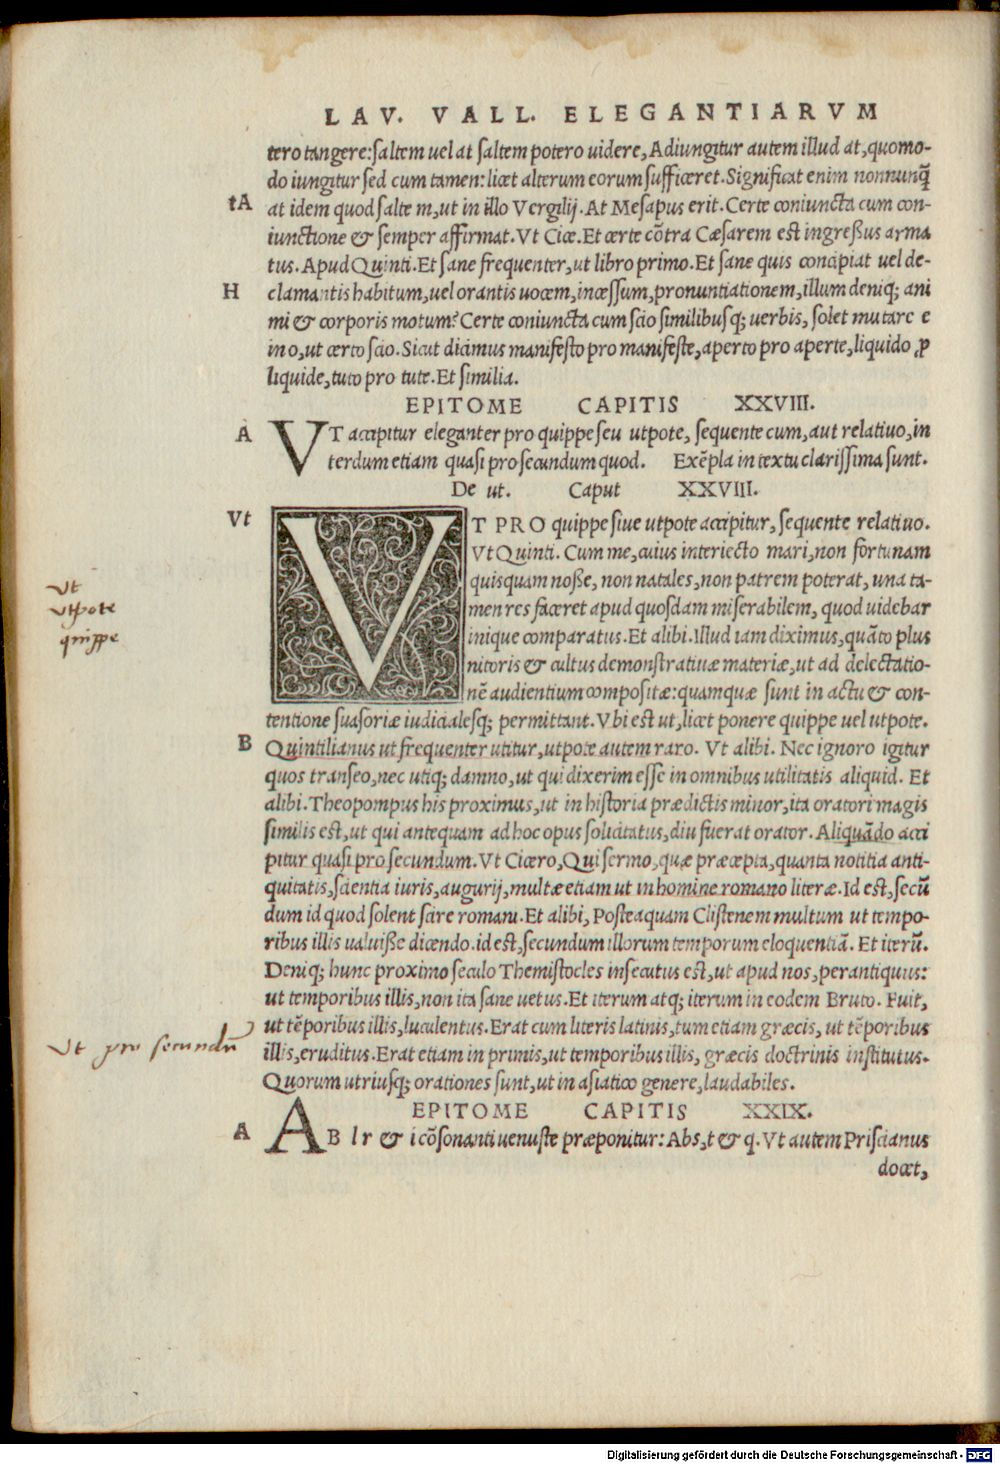 LAV. VALL. ELEGANTIARVM
tero tangere: saltem uel at saltem potero uidere, Adiungitur autem illud at, quomo-
do iungitur sed cum tamen: licet alterum eorum sufficeret. Significat enim nonnunq̃
tA
at idem quod salte m, ut in illo Vergilij. At Mesapus erit. Certe coniuncta cum con-
iunctione & semper affirmat. Vt Cice. Et certe cõtra Cæsarem est ingreßus arma
tus. Apud Quinti. Et sane frequenter, ut libro primo. Et sane quis concipiat uel de-
H
clamantis habitum, uel orantis uocem, incessum, pronuntiationem, illum deniq; ani
mi & corporis motum? Certe coniuncta cum scio similibusq; uerbis, solet mutare e
in o, ut certo scio. Sicut dicimus manifesto pro manifeste, aperto pro aperte, liquido ꝓ
liquide, tuto pro tute. Et similia.
EPITOME CAPITIS XXVIII.
A
VT accipitur eleganter pro quippe seu utpote, sequente cum, aut relatiuo, in
terdum etiam quasi pro secundum quod. Exẽpla in textu clarissima sunt.
De ut. Caput XXVIII.
Vt
VT PRO quippe siue utpote accipitur, sequente relatiuo.
Vt Quinti. Cum me, cuius interiecto mari, non fortunam
quisquam noße, non natales, non patrem poterat, una ta-
Vt
utpote
quippe
men res faceret apud quosdam miserabilem, quod uidebar
inique comparatus. Et alibi. Illud iam diximus, quãto plus
nitoris & cultus demonstratiuæ materiæ, ut ad delectatio-
nẽ audientium compositæ: quamquæ sunt in actu & con-
tentione suasoriæ iudicialesq; permittant. Vbi est ut, licet ponere quippe uel utpote.
B
Quintilianus ut frequenter utitur, utpote autem raro. Vt alibi. Nec ignoro igitur
quos transeo, nec utiq; damno, ut qui dixerim esse in omnibus utilitatis aliquid. Et
alibi. Theopompus his proximus, ut in historia prædictis minor, ita oratori magis
similis est, ut qui antequam ad hoc opus solicitatus, diu fuerat orator. Aliquãdo acci
pitur quasi pro secundum. Vt Cicero, Qui sermo, quæ præcepta, quanta notitia anti-
quitatis, scientia iuris, augurij, multæ etiam ut in homine romano literæ. Id est, secũ
dum id quod solent scire romani. Et alibi, Posteaquam Clistenem multum ut tempo-
ribus illis ualuiße dicendo. id est, secundum illorum temporum eloquentiã. Et iterũ.
Deniq; hunc proximo seculo Themistocles insecutus est, ut apud nos, perantiquus:
ut temporibus illis, non ita sane uetus. Et iterum atq; iterum in eodem Bruto. Fuit,
ut tẽporibus illis, luculentus. Erat cum literis latinis, tum etiam græcis, ut tẽporibus
Vt pro secundũ
illis, eruditus. Erat etiam in primis, ut temporibus illis, græcis doctrinis institutus.
Quorum utriusq; orationes sunt, ut in asiatico genere, laudabiles.
EPITOME CAPITIS XXIX.
A
AB l r & i cõsonanti uenuste præponitur: Abs, t & q. Vt autem Priscianus
docet,
Digitalisierung gefördert durch die Deutsche Forschungsgemeinschaft - DFG